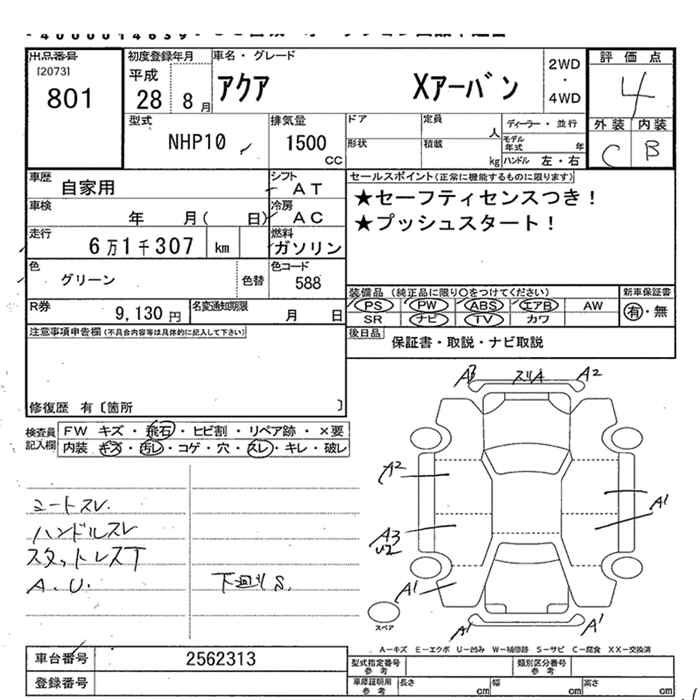 出品番号
[2073]
801
初度登録年月
平成
28 8月
車名・グレード
アクア Xアーバン
2WD
・
4WD
評価点
4
外装 内装
C B
型式
NHP10
排気量
1500
CC
ドア
定員
人
ディーラー・並行
形状
積載
kg
モデル年式
年
ハンドル 左・右
車歴
自家用
シフト
AT
車検
年 月( 日)
冷房
AC
走行
6万1千307 km
燃料
ガソリン
色
グリーン
色替
色コード
588
R券
9,130円
名変通知期限
月 日
セールスポイント(正常に機能するものに限ります)
★セーフティセンスつき!
★プッシュスタート!
装備品(純正品に限り○をつけてください)
PS PW ABS エアB AW
SR ナビ TV カワ
新車保証書
有・無
後日品
保証書・取説・ナビ取説
注意事項申告欄(不具合内容等は具体的に記入して下さい)
修復歴 有〔箇所 〕
検査員記入欄
FW キズ・飛石・ヒビ割・リペア跡・×要
内装 キズ・汚レ・コゲ・穴・スレ・キレ・破レ
シートスレ
ハンドルスレ
スタットレスT
A.U.
下廻りS.
A3
スリA
A2
A2
A1
A3
U2
A1
A1
A1
スペア
A-キズ E-エクボ U-凹み W-補修跡 S-サビ C-腐食 XX-交換済
車台番号
2562313
登録番号
型式指定番号
参考
類別区分番号
参考
車庫証明用
参考
長さ cm
幅 cm
高さ cm